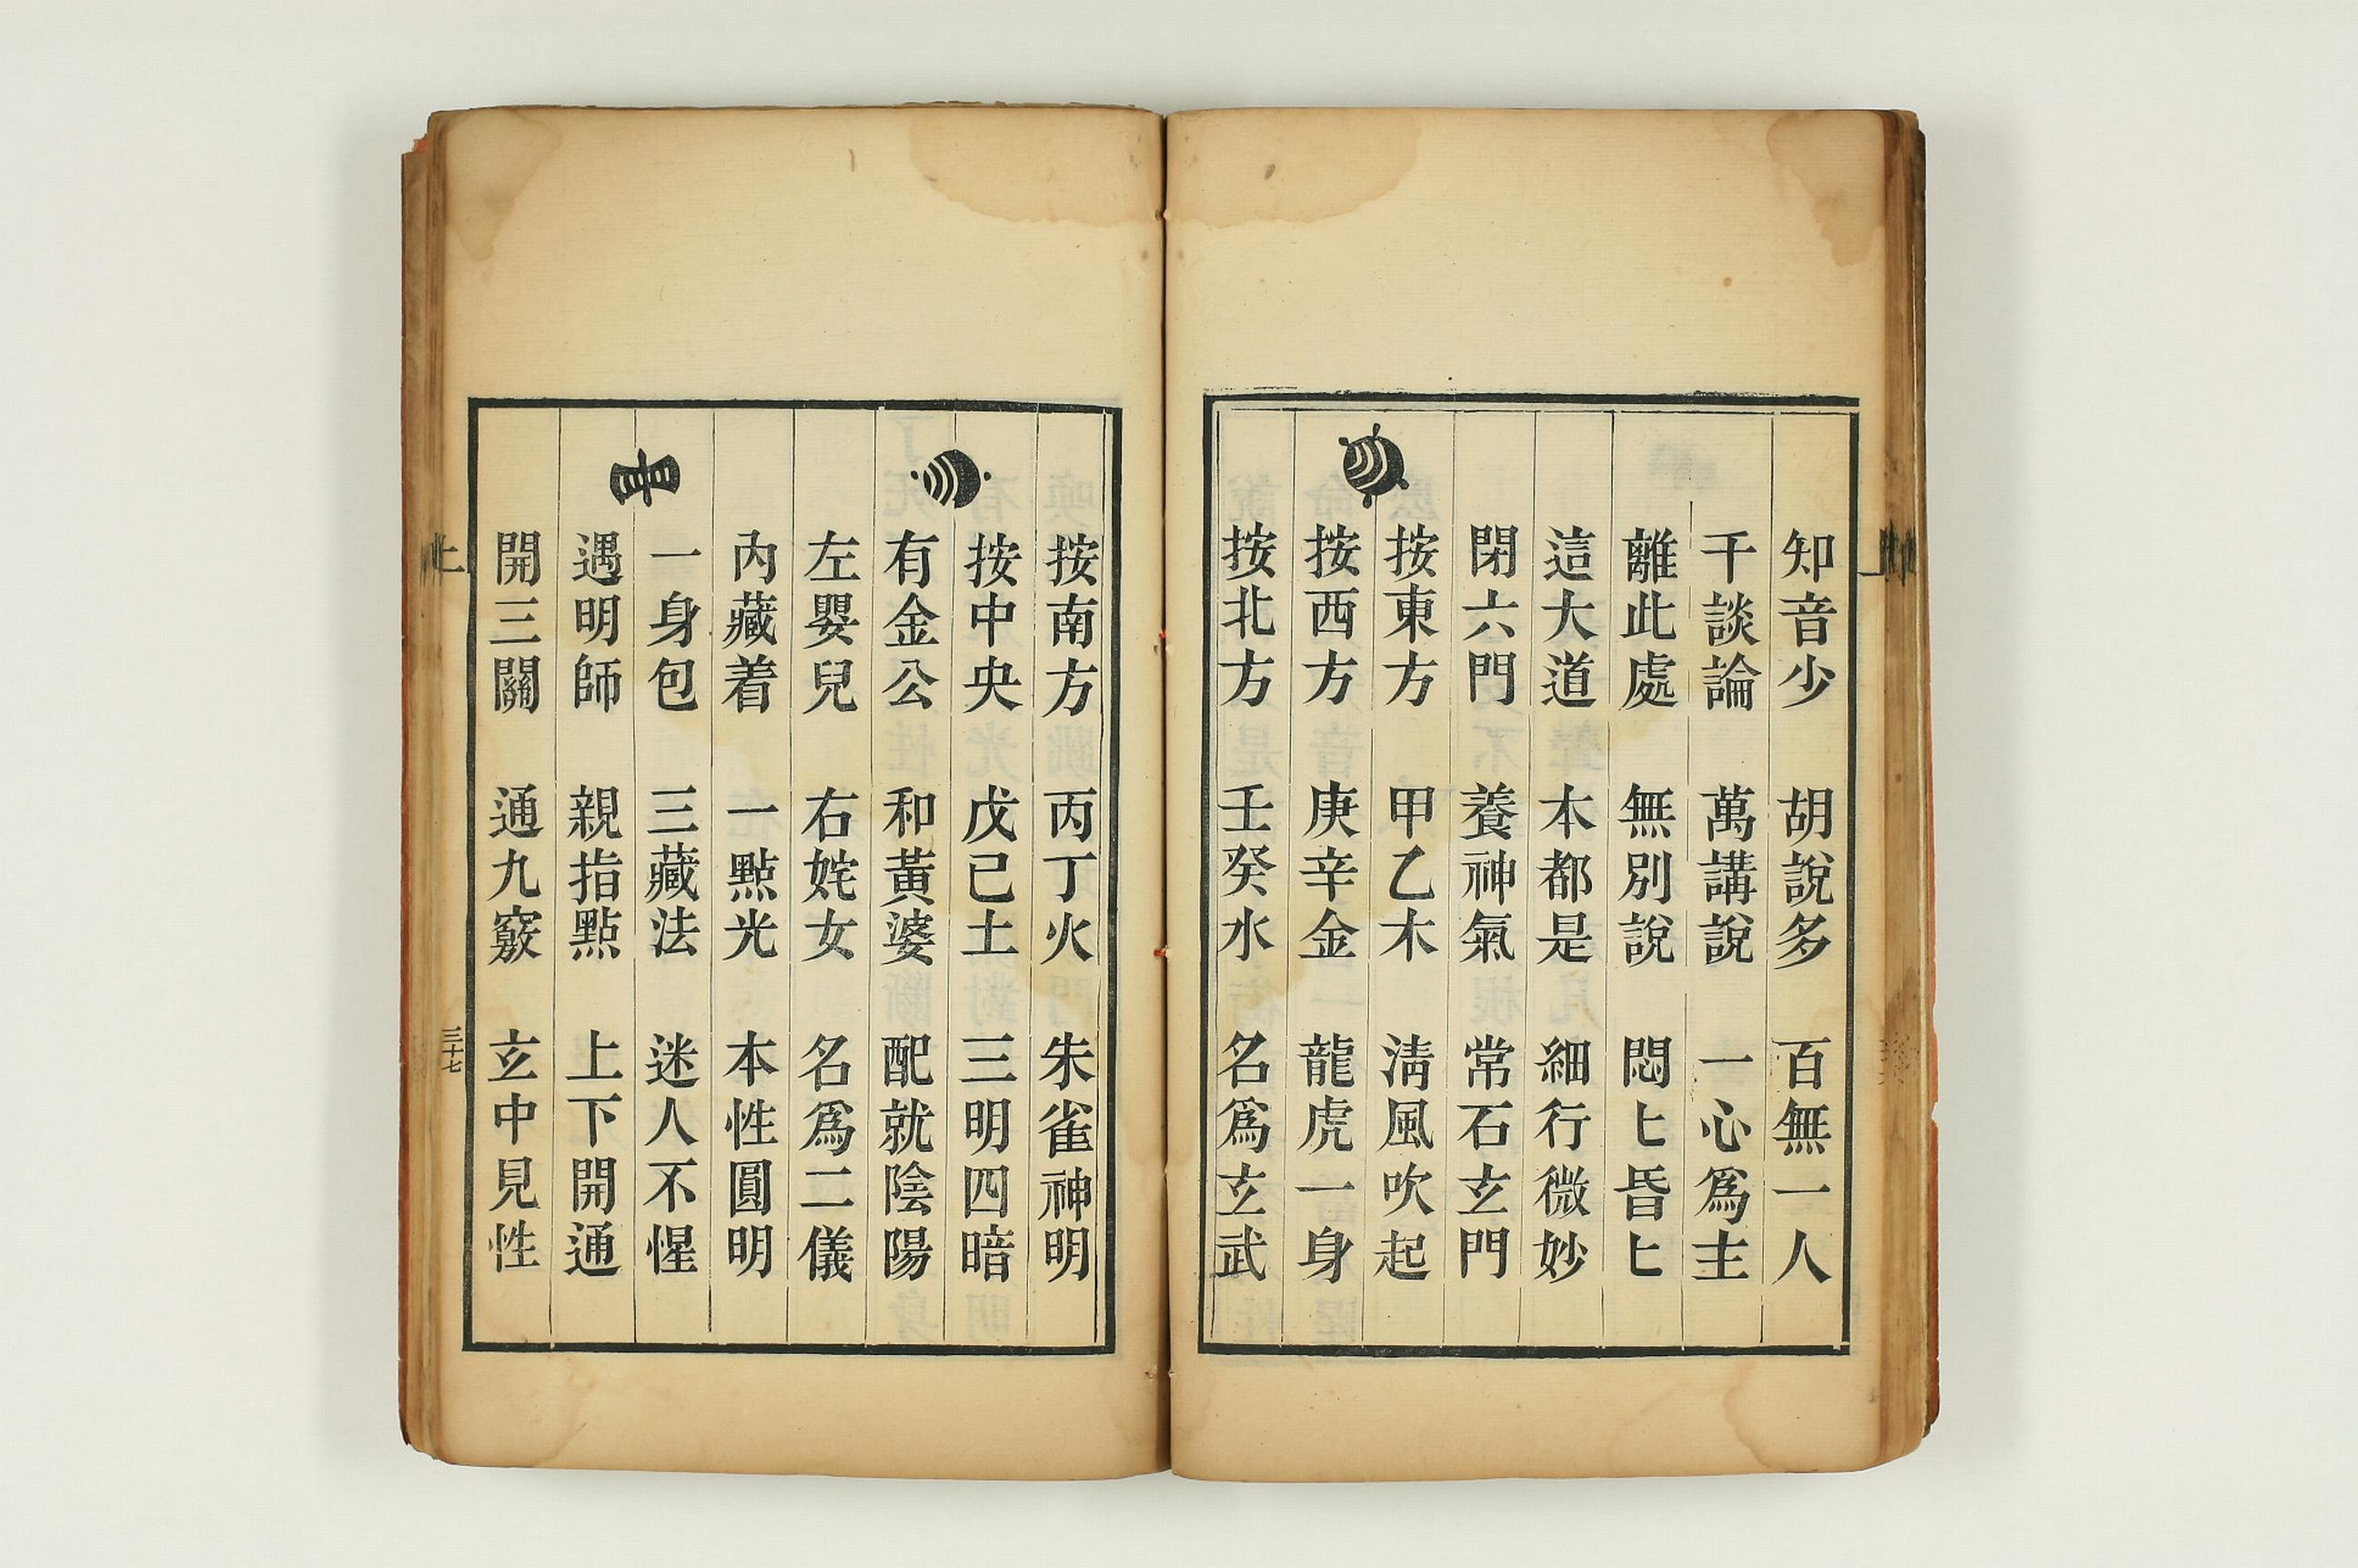 知音少　胡說多　百無一人
千談論　萬講說　一心爲主
離此處　無別說　悶匕昏匕
這大道　本都是　細行微妙
閉六門　養神氣　常石玄門
按東方　甲乙木　淸風吹起
按西方　庚辛金　龍虎一身
按北方　壬癸水　名爲玄武
按南方　丙丁火　朱雀神明
按中央　戊己土　三明四暗
有金公　和黃婆　配就陰陽
左嬰兒　右姹女　名爲二儀
內藏着　一點光　本性圓明
一身包　三藏法　迷人不惺
遇明師　親指點　上下開通
開三關　通九竅　玄中見性
上
三十七